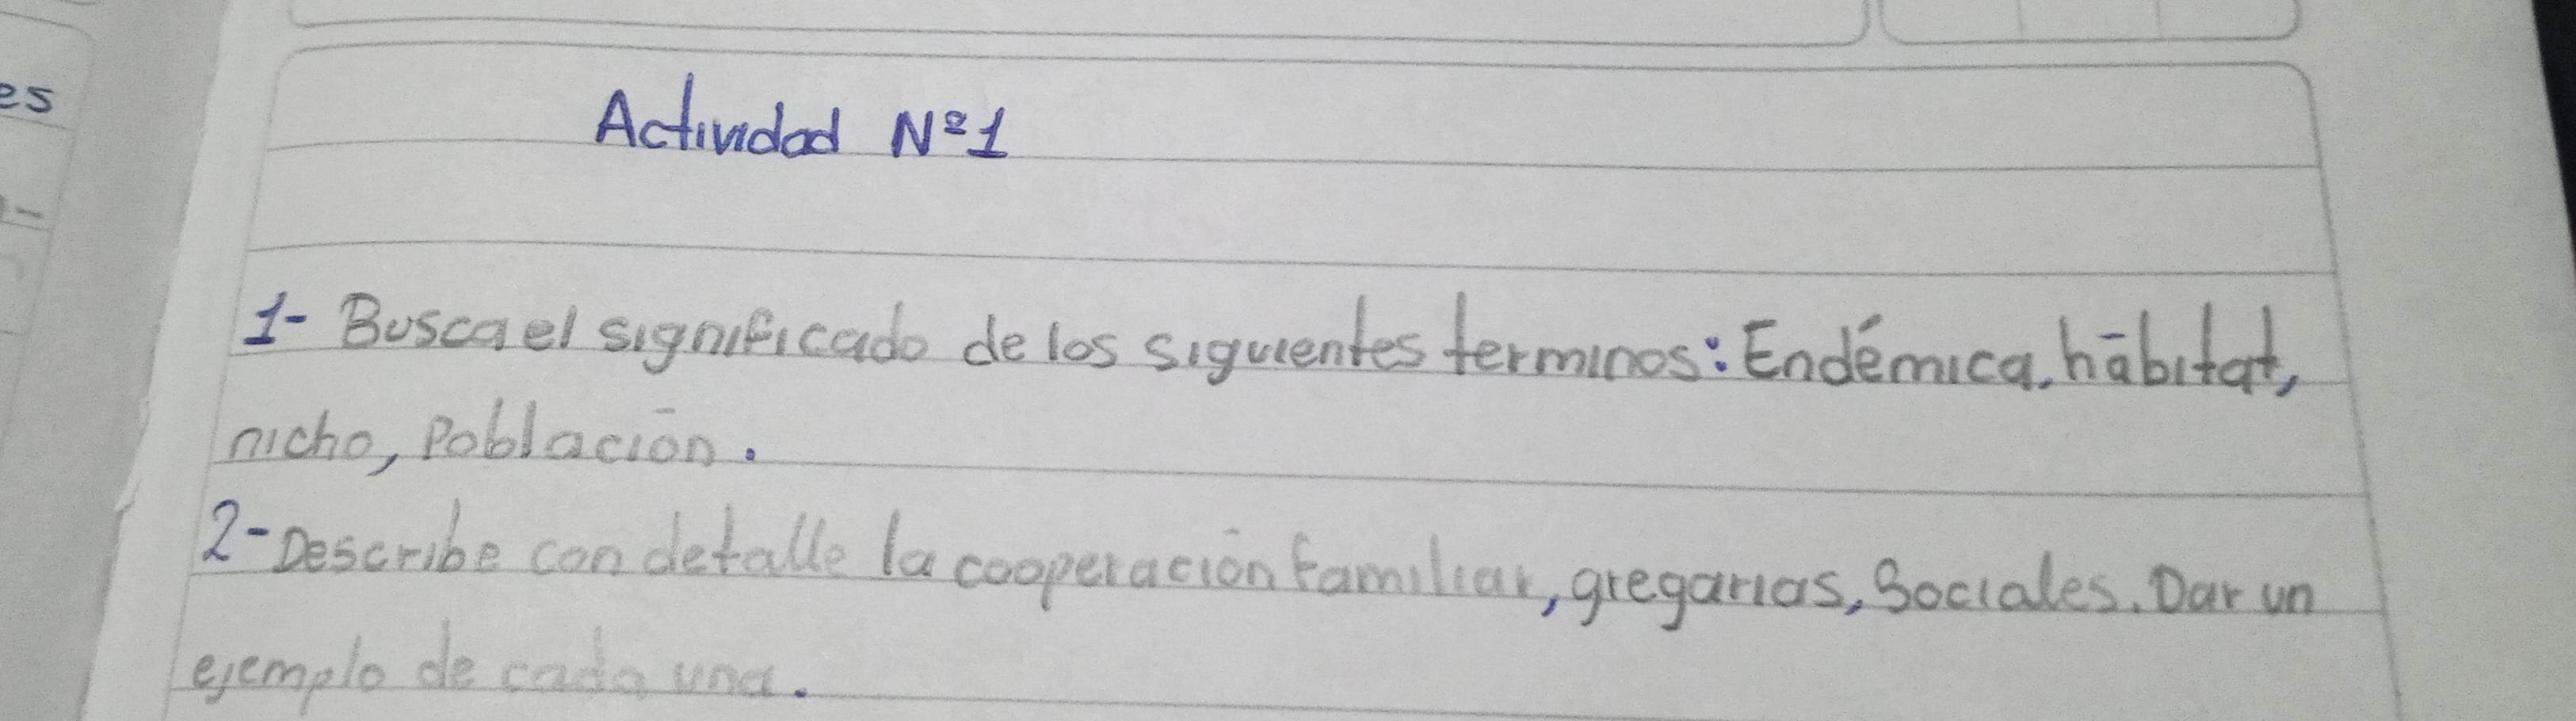 es
Actividad Nº1
1- Busca el significado de los siguientes terminos: Endémica, hābitat,
nicho, Población.
2- Describe con detalle la cooperación familiar, gregarias, Sociales. Dar un
ejemplo de cada una.